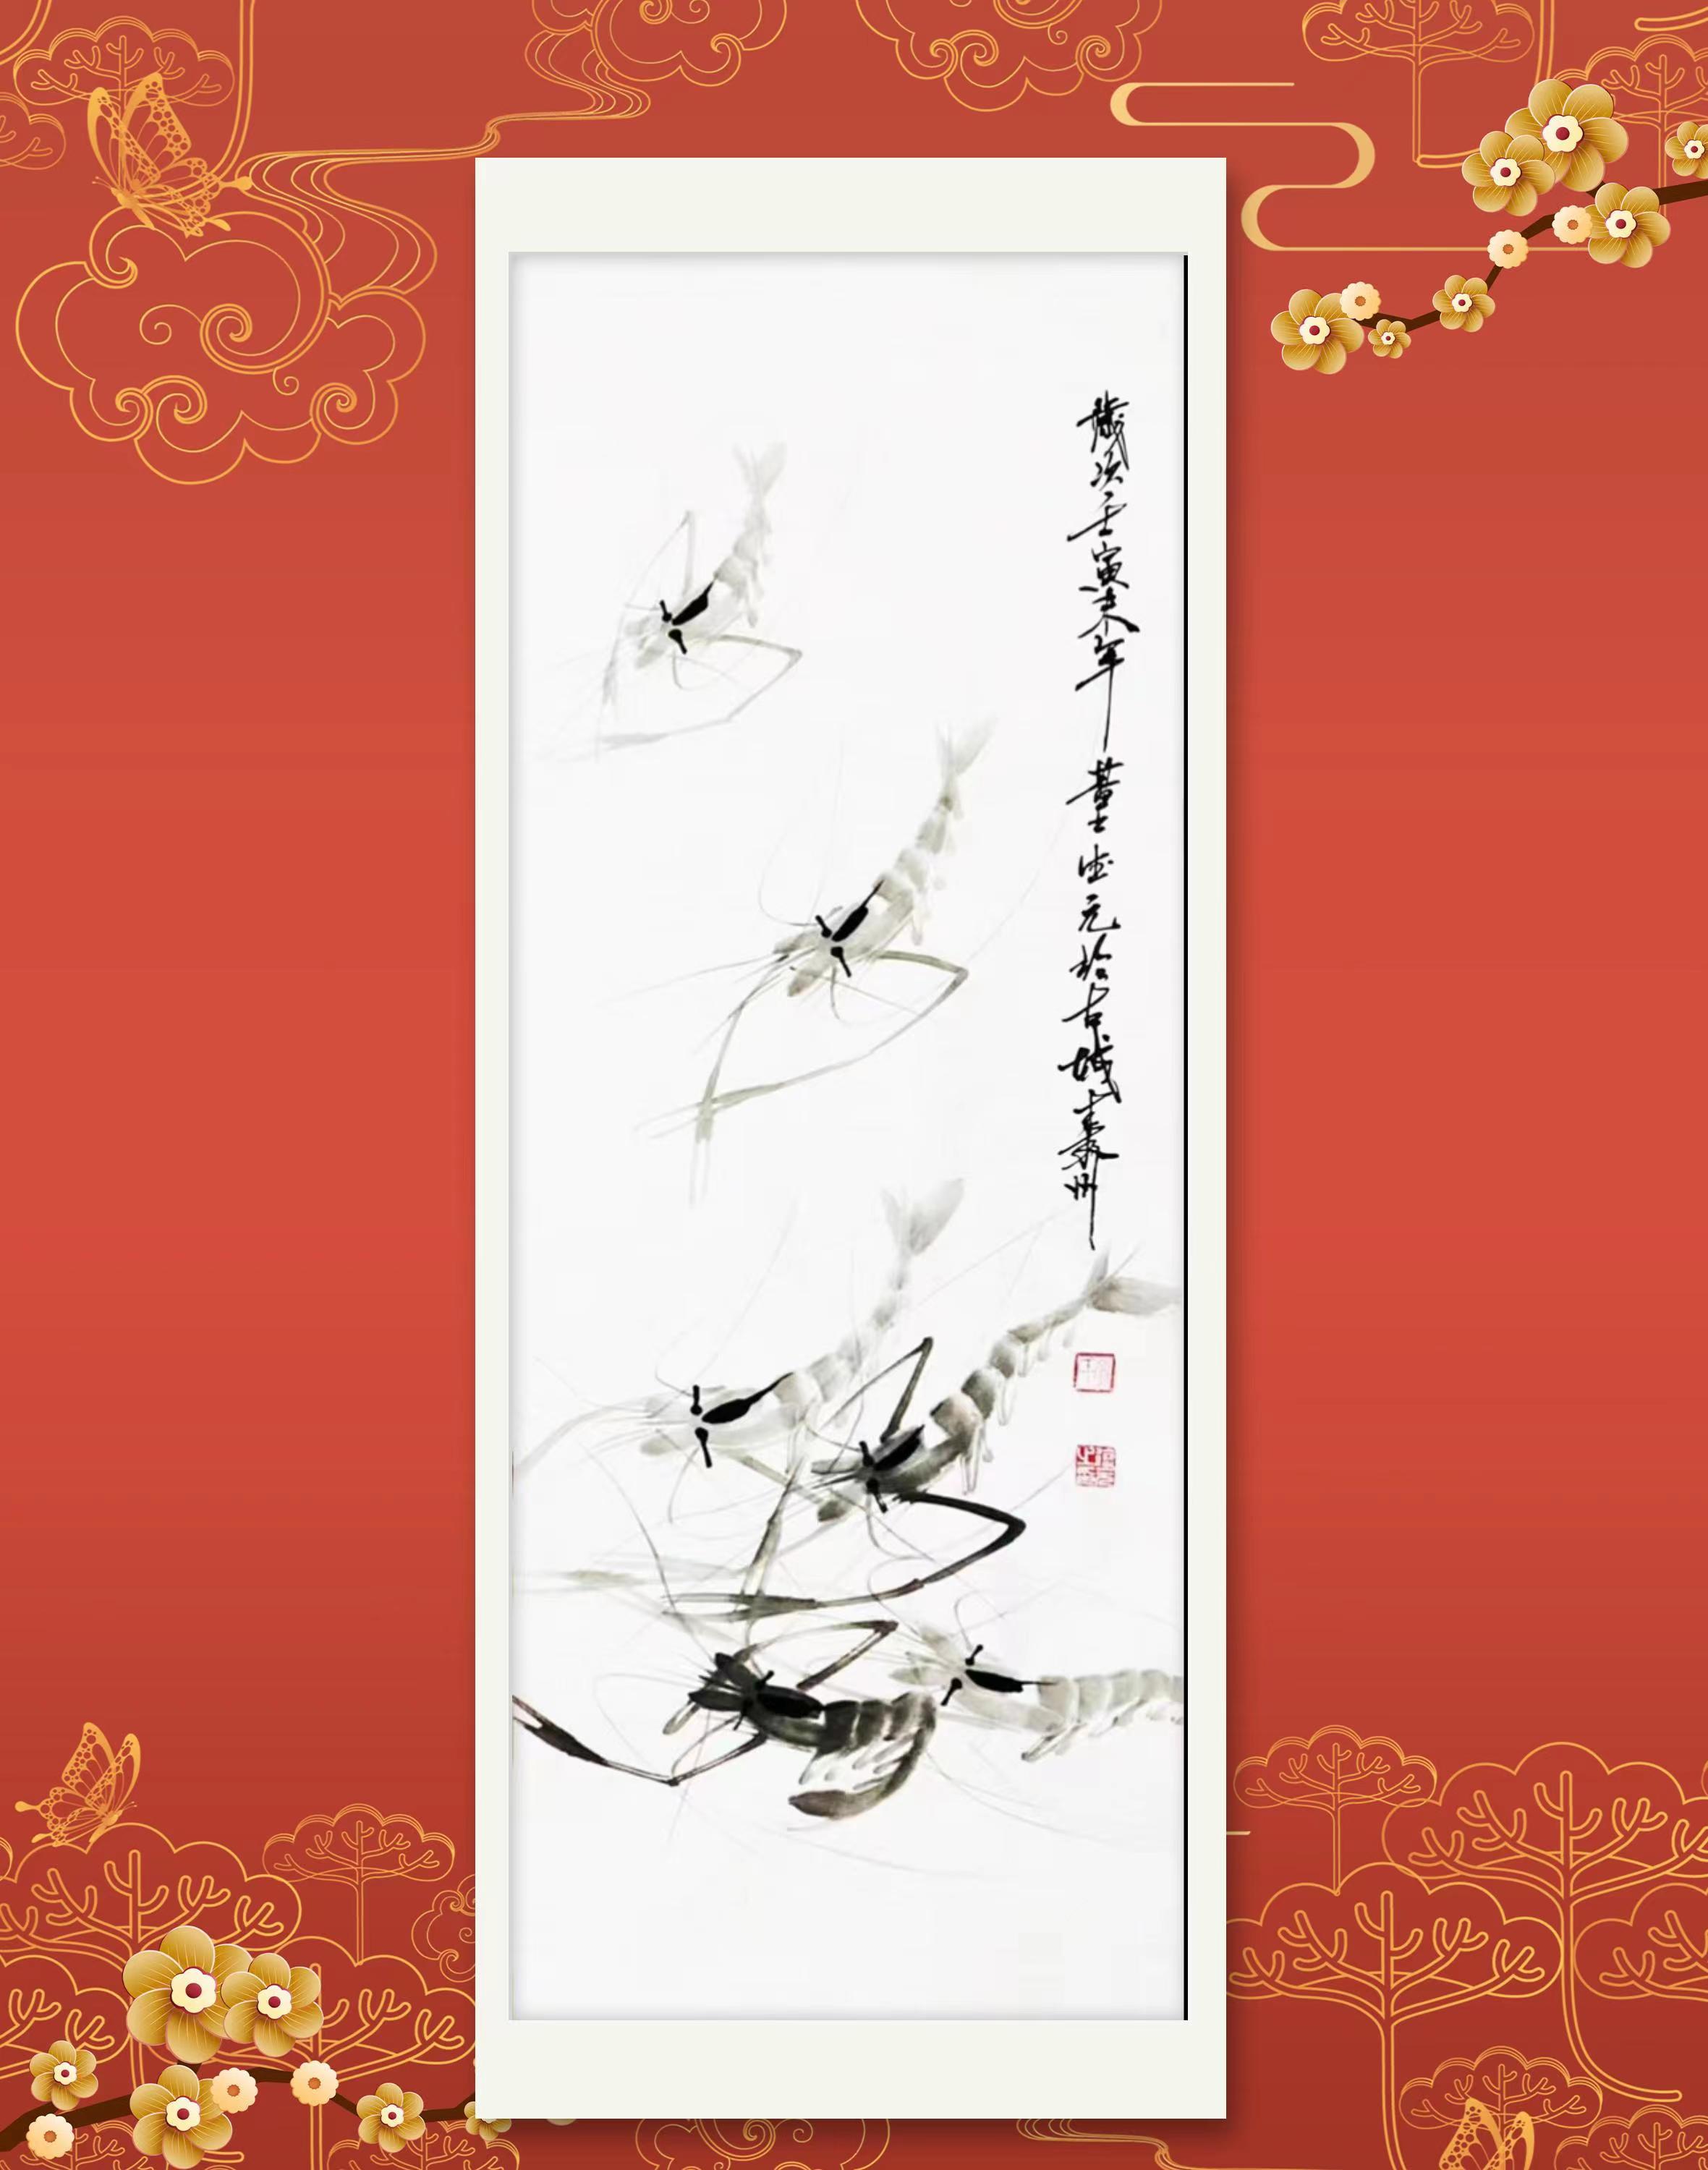 歲次壬寅末年董德元於古城泰州